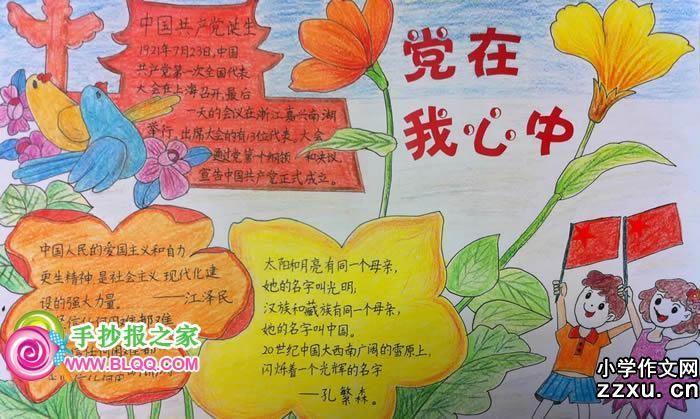 中国共产党诞生
1921年7月23日,中国
共产党第一次全国代表
大会在上海召开,最后
一天的会议在浙江嘉兴南湖
举行。出席大会的有13位代表。大会
通过党第一个纲领 和决议,
宣告中国共产党正式成立。
党在
我心中
中国人民的爱国主义和自力
更生精神是社会主义现代化建
设的强大力量。
——江泽民
太阳和月亮有同一个母亲,
她的名字叫光明,
汉族和藏族有同一个母亲,
她的名字叫中国。
20世纪中国大西南广阔的雪原上,
闪烁着一个光辉的名字
——孔繁森。
手抄报之家
WWW.BLQQ.COM
小学作文网
zzxu.cn